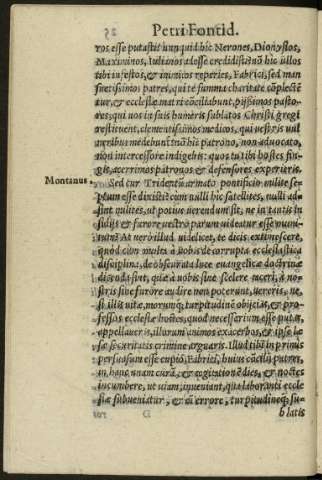 Petri Fontid.
ros esse putastis? nunquid hic Nerones, Dionysios,
Maximinos, Iulianos adesse credidisti? nō hic ullos
tibi infestos, & inimicos reperies, Fabrici, sed man
suetissimos patres, qui te summa charitate cōplectē
tur, & ecclesiæ matri cōciliabunt, pijssimos pasto-
res, qui nos in suis humeris sublatos Christi gregi
restituent, clementissimos medicos, qui vestris vul
neribus medebuntur: nō hic patrono, non aduocato,
non intercessore indigebis: quos tu tibi hostes fin-
gis, acerrimos patronos & defensores experiêris.
Montanus.
Sed cur Tridentū armato pontificio milite se-
ptum esse dixisti? cùm nulli hic satellites, nulli ad-
sint milites, ut potius uerendum sit, ne in tantis in
sidijs & furore uestro parum uideatur esse muni-
tum? At uerò illud uidelicet, te dicis extimescere,
quòd cùm multa à nobis de corrupta ecclesiastica
disciplina, de obscurata luce euangelicæ doctrinæ
dicenda sint, quæ à nobis sine scelere taceri, à no-
stris sine furore audire non poterunt, uereris, ne
si illis uitæ, morumq́; turpitudinē obijcias, & pro-
fessos ecclesiæ hostes, quod necessarium esse putas,
appellaueris, illorum animos exacerbes, & ipse læ
sæ securitatis crimine arguaris. Illud tibi in primis
persuasum esse cupio, Fabrici, huius cōcilij patres,
in hanc unam curā, & cogitationē dies, & noctes
incumbere, ut uiam inueniant, qua laboranti eccle
siæ subueniatur, & cū errore, turpitudineq́; su-
blatis